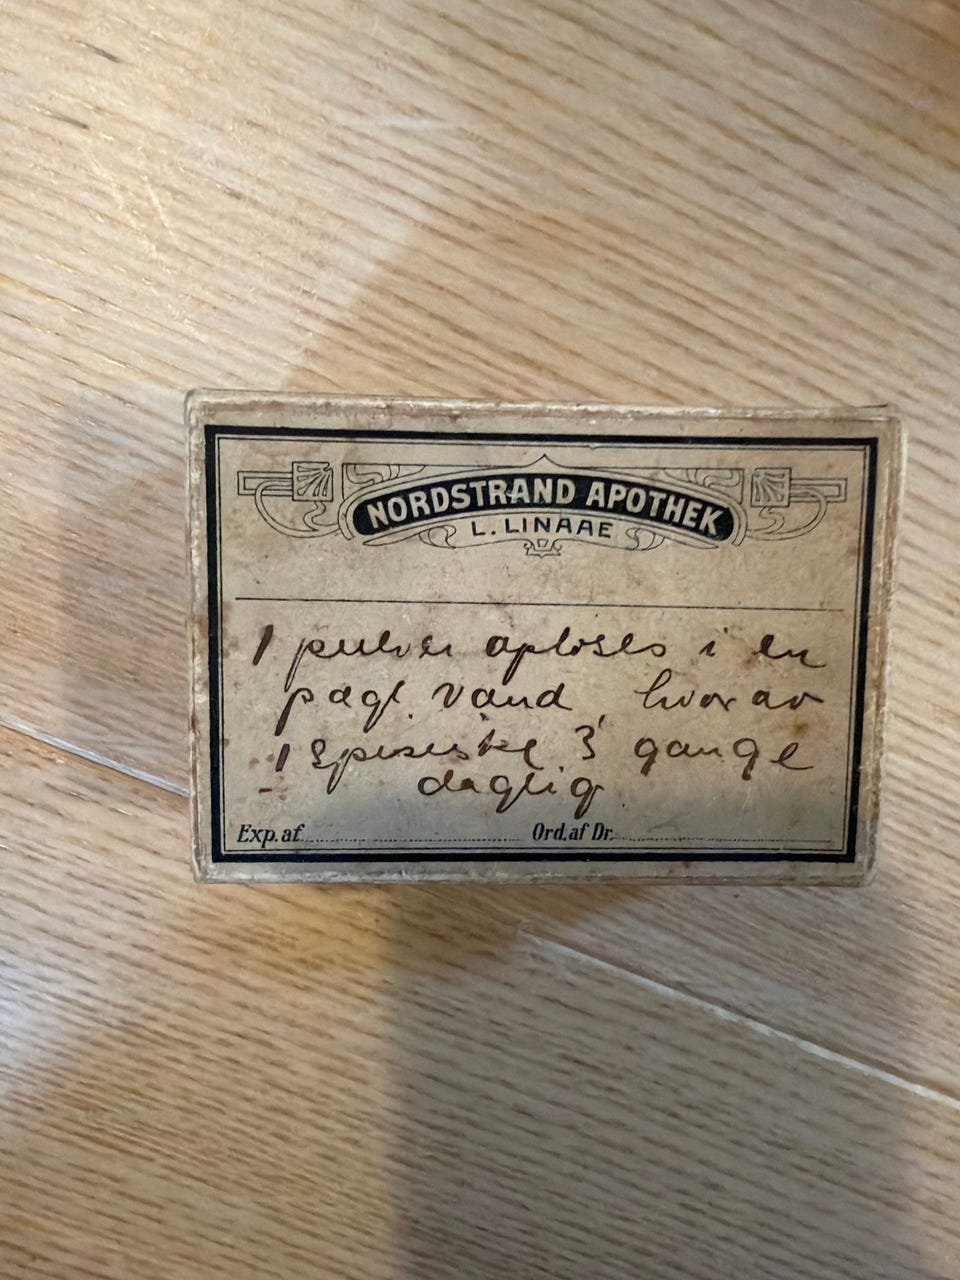 NORDSTRAND APOTHEK
L. LINAAE
1 pulver opløses i en
pægl vand, hvorav
1 Spiseske 3 gange
daglig.
Exp. af
Ord. af Dr.